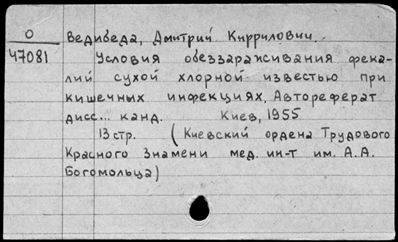 О Ведиведа, Дмитрий Кирилович.
47081 Условия обеззараживания фека-
лий сухой хлорной известью при
кишечных инфекциях. Автореферат
дисс... канд. Киев, 1955
13 стр. (Киевский ордена Трудового
Красного Знамени мед. ин-т им. А.А.
Богомольца)